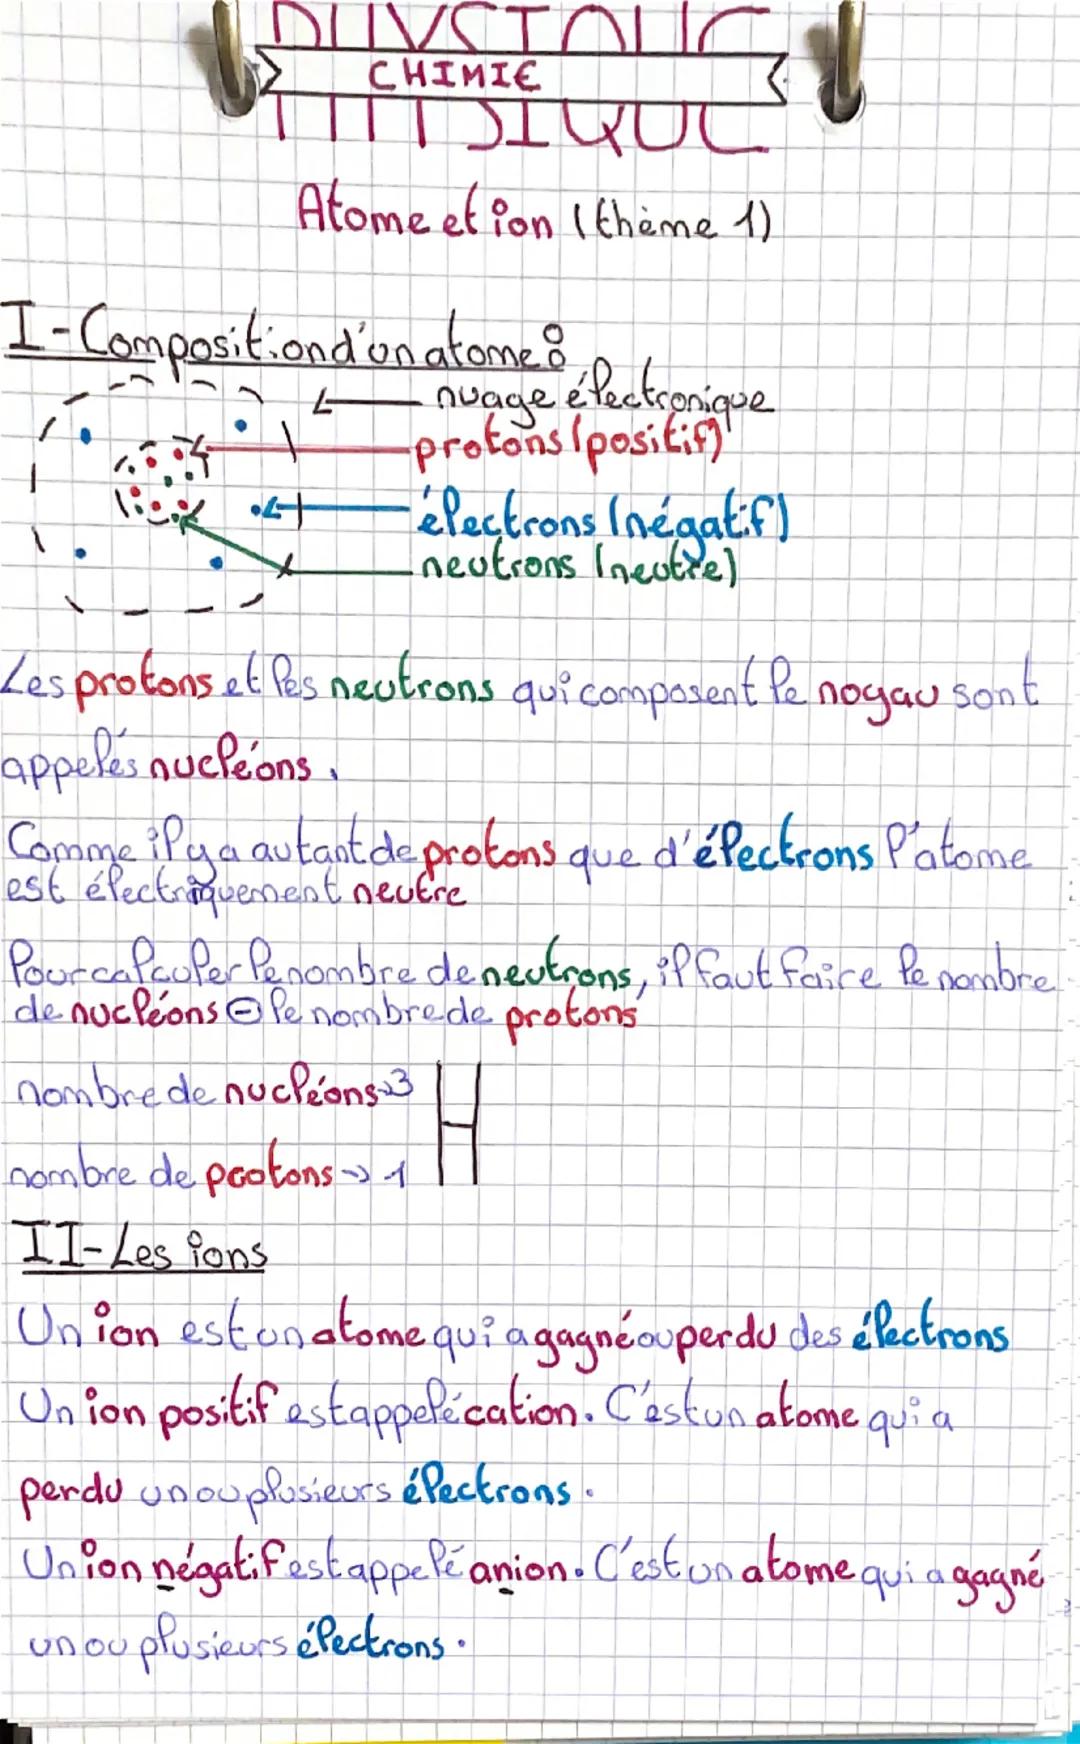 PHYSIQUE
CHIMIE
Atome et ion (thème 1)
I-Composition d'un atome :
nuage électronique
protons (positif)
électrons (négatif)
neutrons (neutre)
Les protons et les neutrons qui composent le noyau sont
appelés nucléons.
Comme il y a autant de protons que d'électrons l'atome
est électriquement neutre
Pour calculer le nombre de neutrons, il faut faire le nombre
de nucléons ⊖ le nombre de protons
nombre de nucléons → 3
H
nombre de protons → 1
II-Les ions
Un ion est un atome qui a gagné ou perdu des électrons
Un ion positif est appelé cation. C'est un atome qui a
perdu un ou plusieurs électrons.
Un ion négatif est appelé anion. C'est un atome qui a gagné
un ou plusieurs électrons.